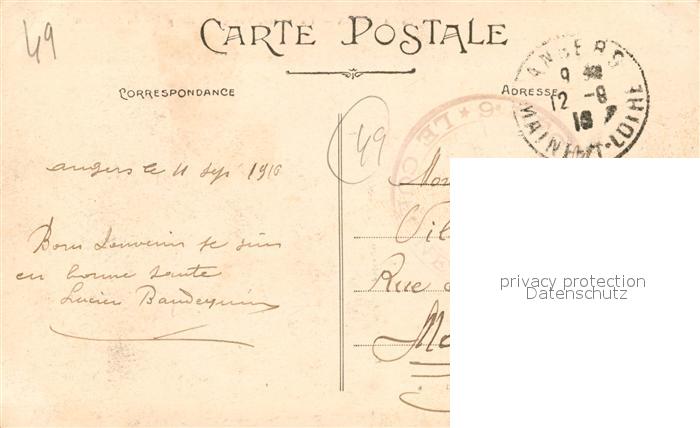 49
CARTE POSTALE
CORRESPONDANCE
ADRESSE
ANGERS
9
12 - 8
MAINE-ET-LOIRE
49
angers le 11 Sep 1916
Bons Souvenirs je suis
en bonne sante
Lucien
Mon
Vil
Rue
privacy protection
Datenschutz